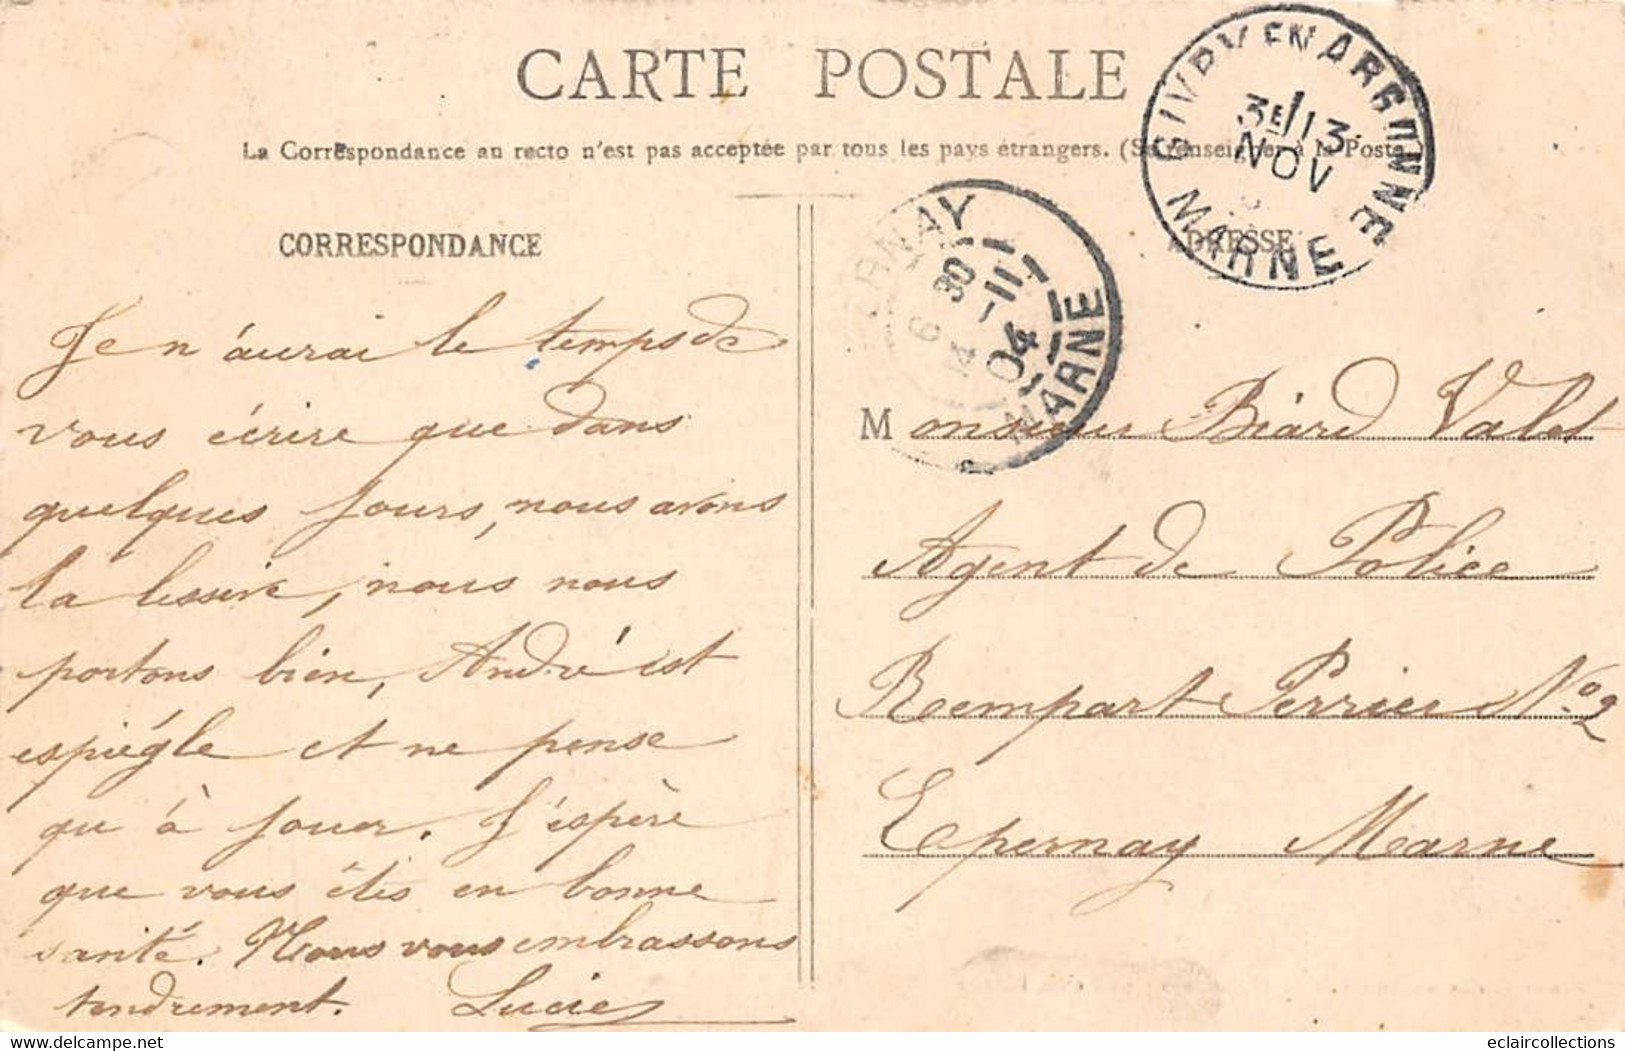 CARTE POSTALE
La Correspondance au recto n'est pas acceptée par tous les pays étrangers. (Se renseigner à la Poste
CORRESPONDANCE
ADRESSE
GIVRY EN ARGONNE
3E/13
NOV
MARNE
ERNAY
6 30
14 -11
04
MARNE
Je n'aurai le temps de
vous écrire que dans
quelques jours, nous avons
la lessive, nous nous
portons bien, André est
espiégle et ne pense
qu'à jouer. J'espère
que vous êtes en bonne
santé. Nous vous embrassons
tendrement. Lucie
Monsieur Biard Valet
Agent de Police
Rempart Perrier No 2
Epernay Marne
eclaircollections